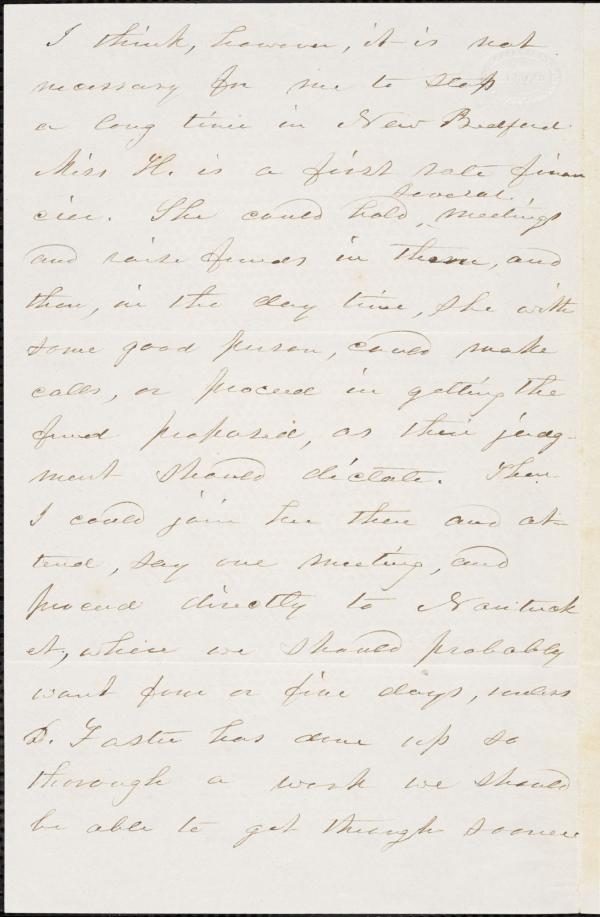 I think, however, it is not
necessary for me to stop
a long time in New Bedford.
Miss H. is a first rate finan
several
cier. She could hold, meetings
and raise funds in them, and
then, in the day time, she with
some good person, could make
calls, or proceed in getting the
fund proposed, as their judg-
ment should dictate. Then
I could join her there and at-
tend, say one meeting, and
proceed directly to Nantuck
et, where we should probably
want four or five days, unless
S. Foster has done up so
thorough a work we should
be able to get through sooner